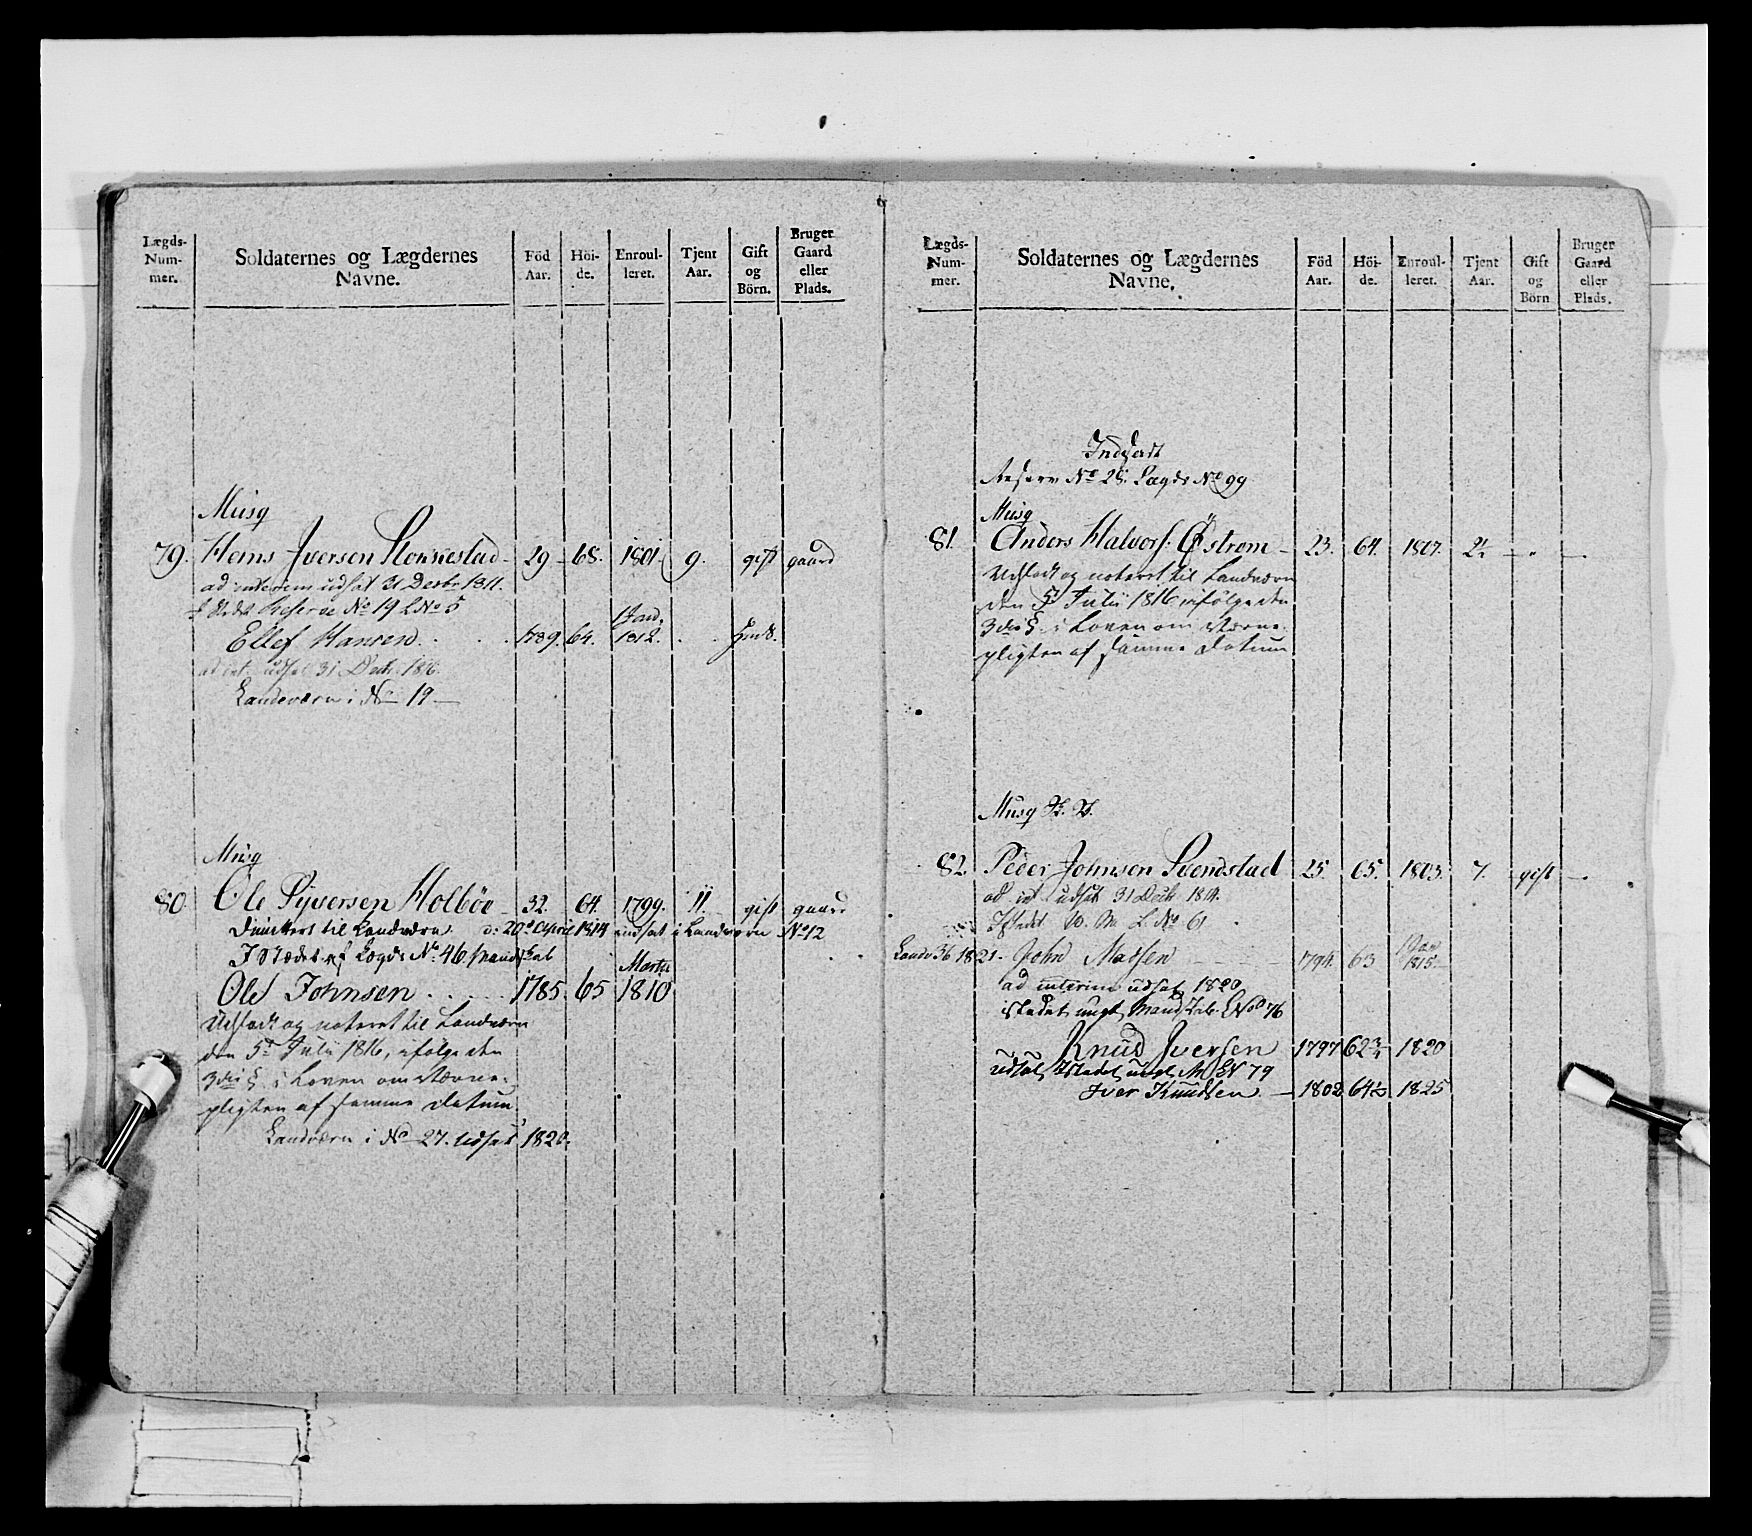 Lægds-
Num-
mer.
Soldaternes og Lægdernes
Navne.
Föd
Aar.
Höi-
de.
Enroul-
leret.
Tjent
Aar.
Gift
og
Börn.
Bruger
Gaard
eller
Plads.
Musq
79. Iversen 29 68. 1801 9. gift gaard
ad interim udsat 31 Decbr 1811.
Reserve No 19 L No 5
Ellef Hansen 1789. 64. Jan. 1812.
udsat 31 Decbr. 1816.
Landeværn i No 19
Musq
80. Ole Syversen Holböe 32. 64. 1799. 11. gift gaard
til Landværn d: 20de April 1814 udsat i Landværn No 12
I Stædet af Lægds No 46 Mandskab
Ole Johnsen 1785. 65 Marts 1810
Udsadt og noteret til Landværn
den 5te Julii 1816, ifölge den
3die § i Loven om Værne-
pligten af samme Datum
Landværn i No 27. udsat 1820.
Lægds-
Num-
mer.
Soldaternes og Lægdernes
Navne.
Föd
Aar.
Höi-
de.
Enroul-
leret.
Tjent
Aar.
Gift
og
Börn
Bruger
Gaard
eller
Plads.
No 28. Lægds No 99
Musq
81. Anders Halvors: Östrom 23. 64. 1807. 2½
Udsadt og noteret til Landværn
den 5te Julii 1816, ifölge den
3die § i Loven om Værne-
pligten af samme Datum
Musq
82. Peder Johnsen Svendstad 25. 65. 1803. 7. gift
ad int udsat 31 Decbr 1814.
Istedet L No 61
Landv 36 1821. John Madsen 1794. 63 Jan 1815
ad interim udsat 1820
istedet ungt Mandskab L No 76
Knud Iversen 1797 62¾ 1820
udsat, Istedet ungt M L N 79
Iver Knudsen 1802 64½ 1825